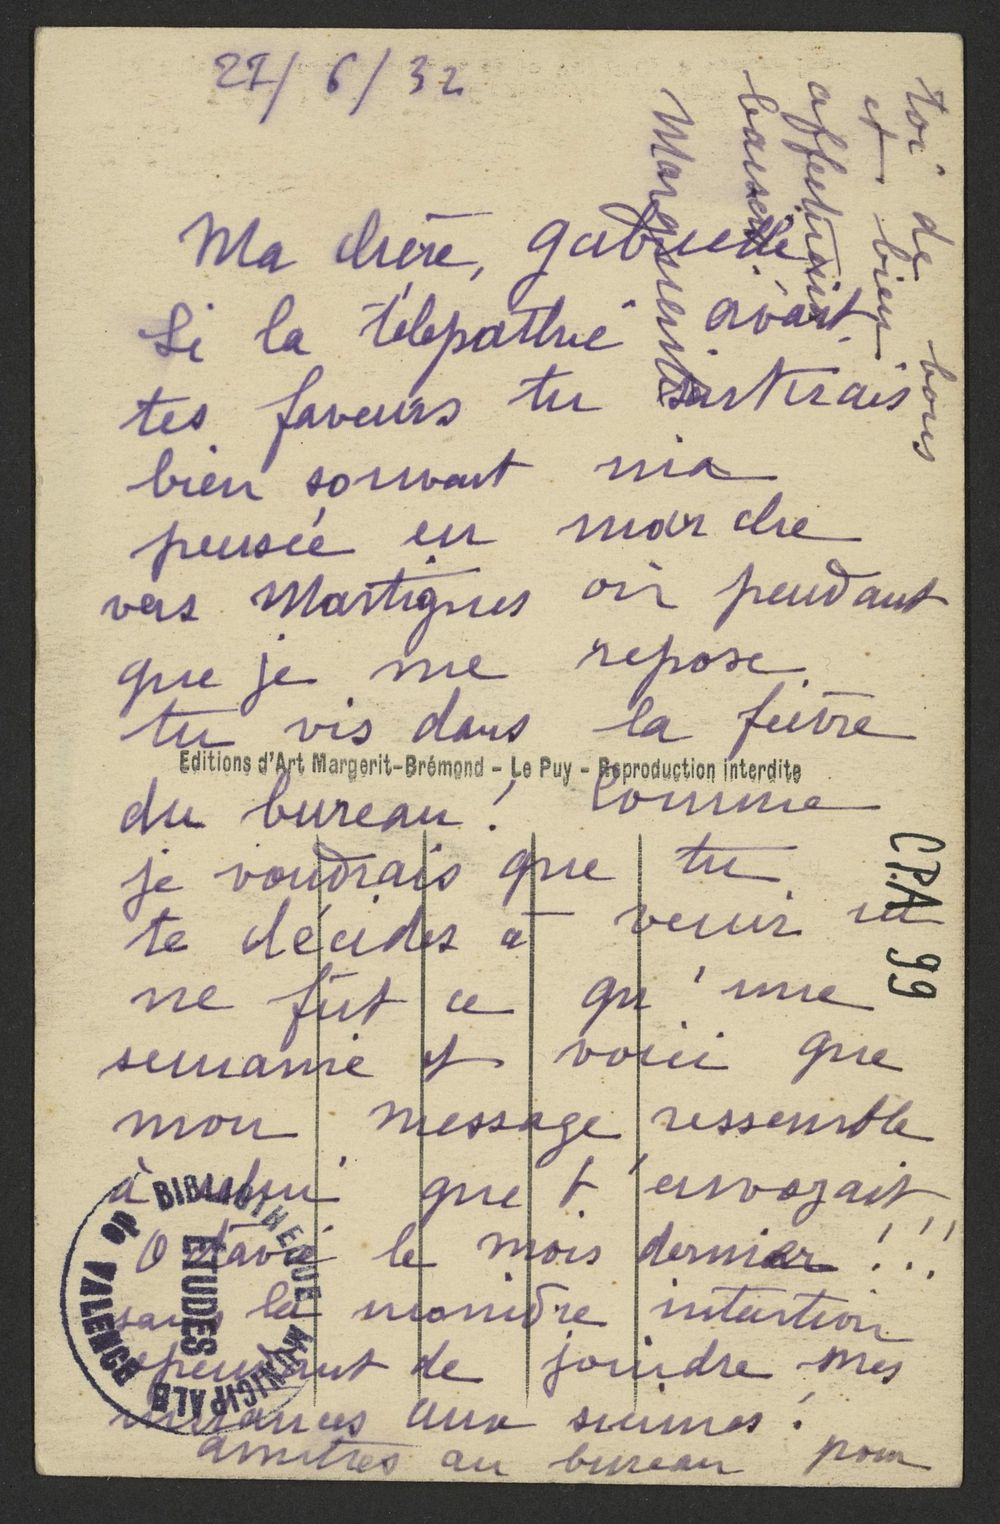 27/6/32
Ma chère, gabrielle
Si la télépathie avait
tes faveurs tu sentirais
bien souvent ma
pensée en marche
vers Martigues où pendant
que je me repose
tu vis dans la fièvre
Editions d'Art Margerit-Brémond - Le Puy - Reproduction interdite
du bureau! Comme
je voudrais que tu
te décides à venir ici
ne fût ce qu'une
semaine et voici que
mon message ressemble
à celui que t'envoyait
Octavie le mois dernier!!!
sans la moindre intention
cependant de joindre mes
instances aux siennes!
amitiés au bureau pour
toi de bons
et bien
affectueux
baisers
Marguerite
CPA 99
BIBLIOTHEQUE MUNICIPALE
de VALENCE
ETUDES